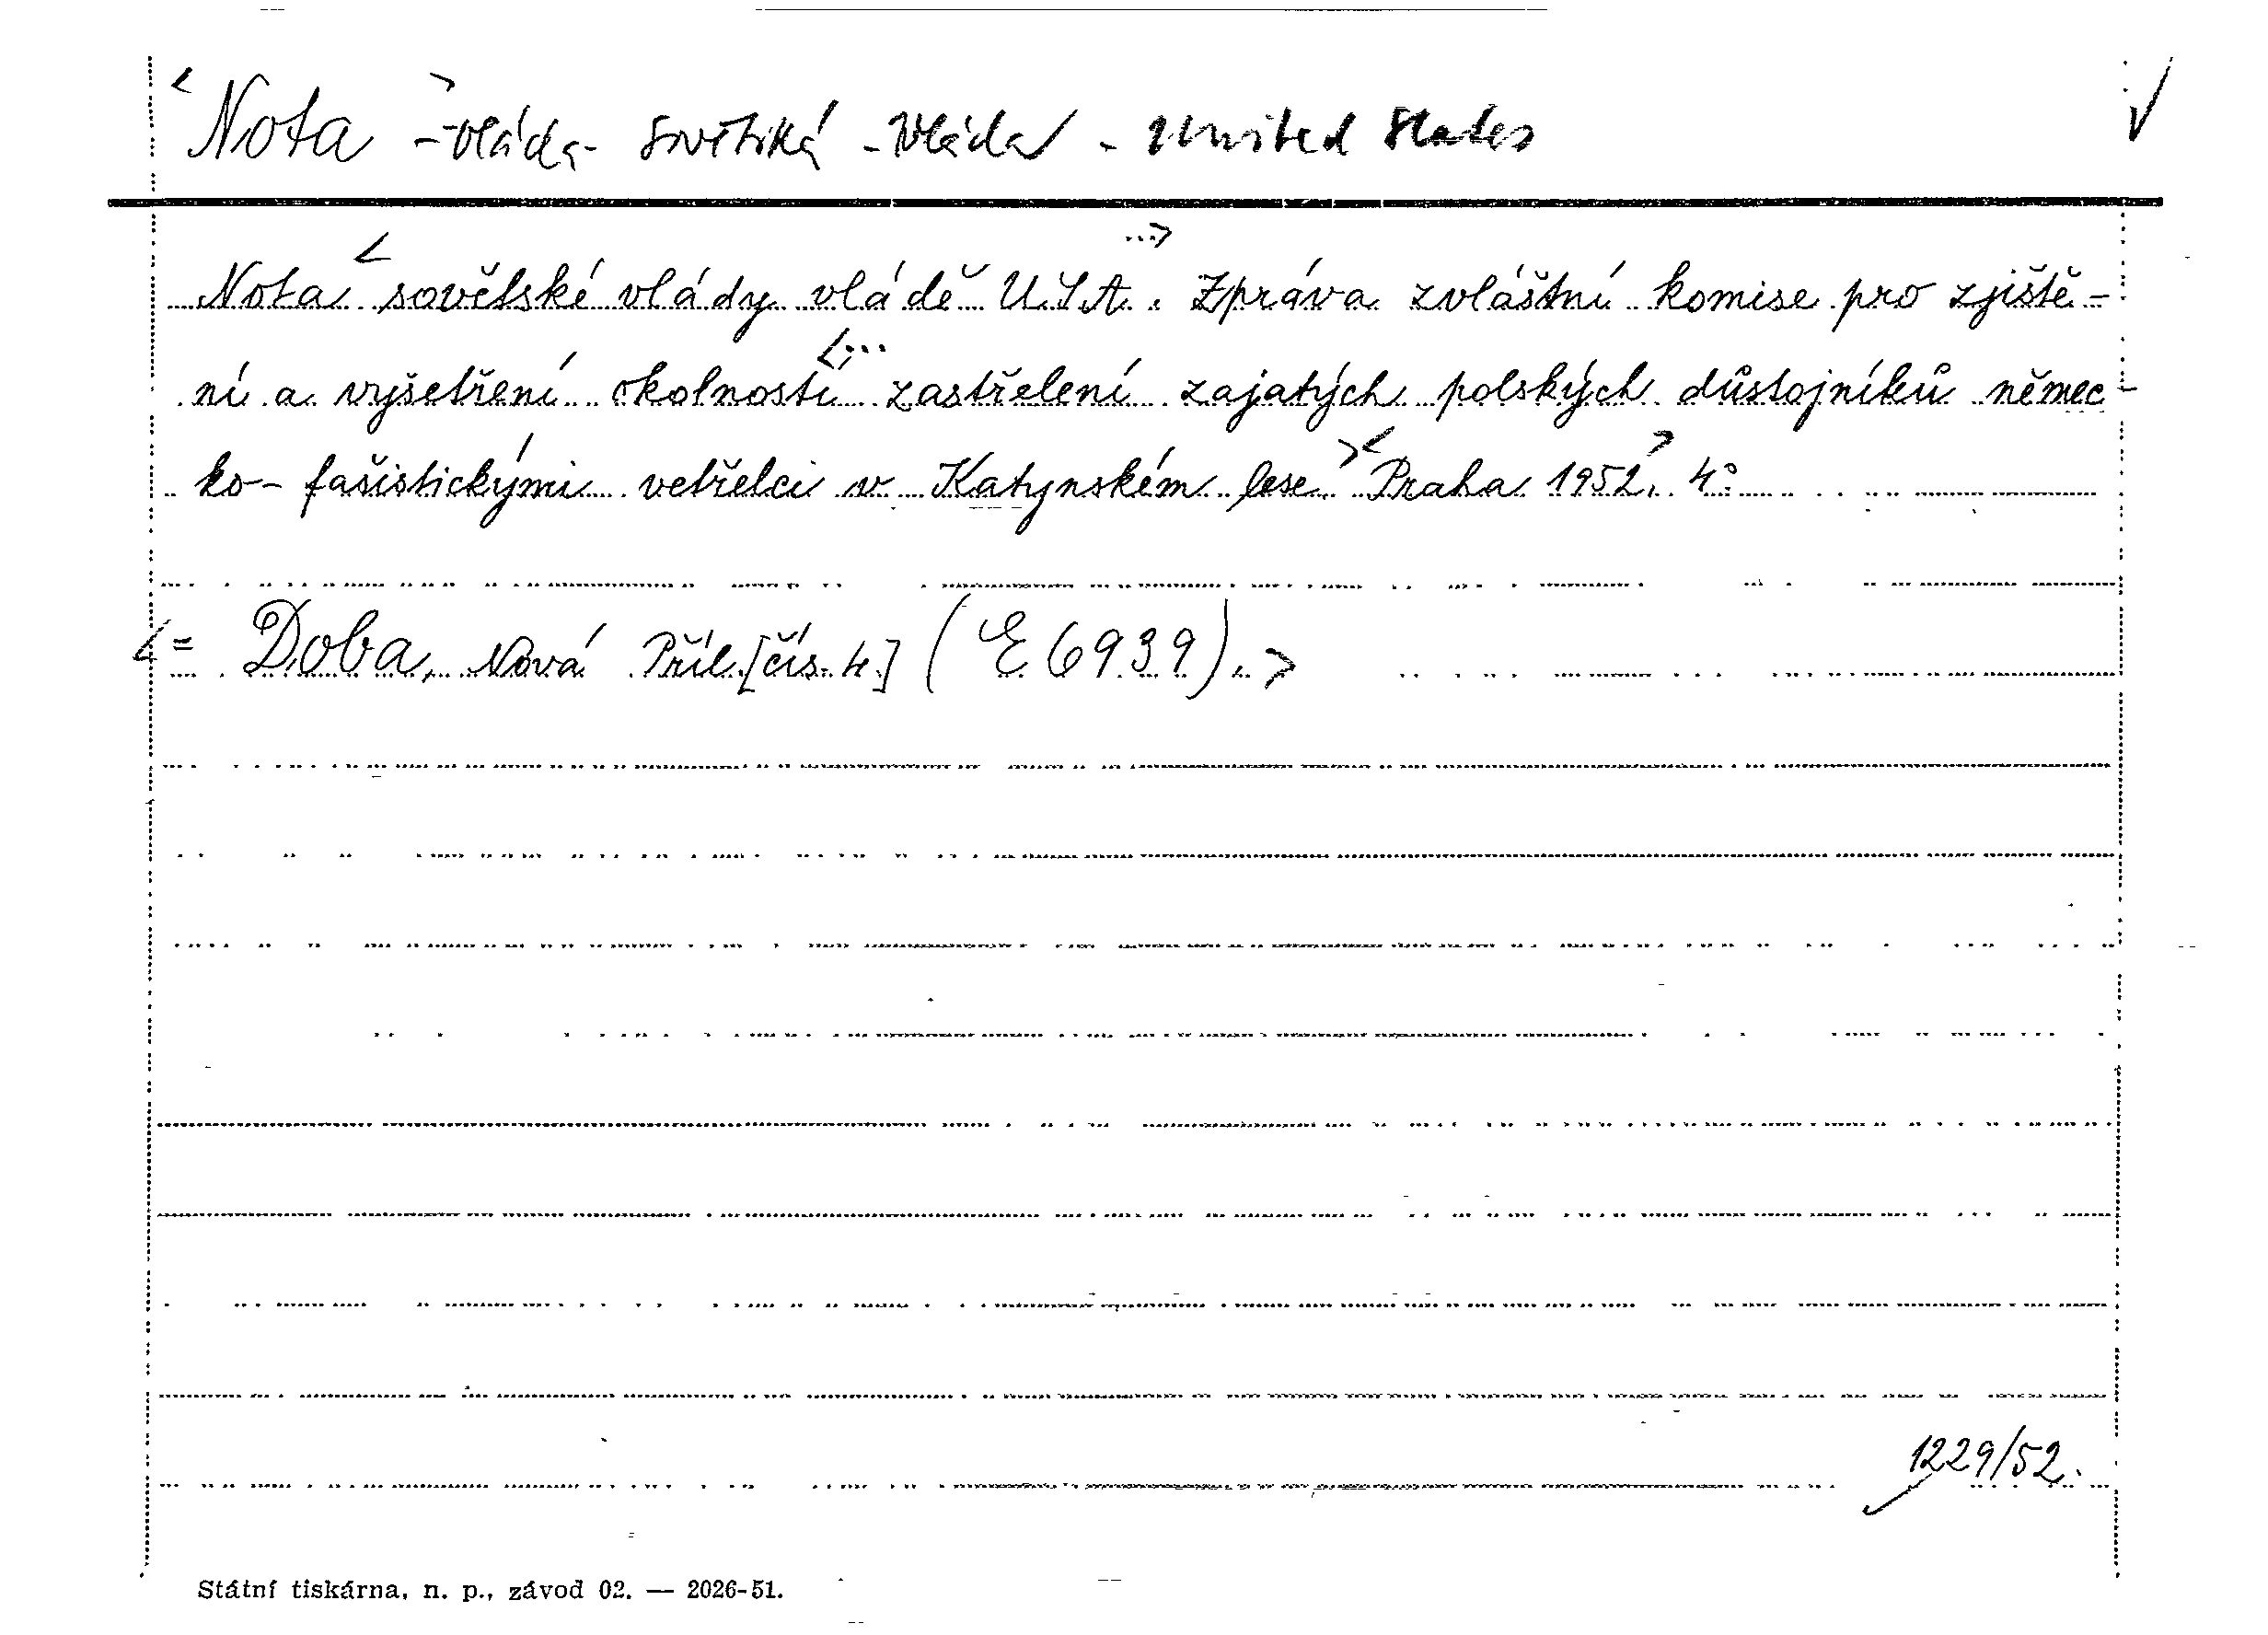 Nota - vláda - sovětská - vláda - United States
Nota sovětské vlády vládě USA. Zpráva zvláštní komise pro zjiště-
ní a vyšetření okolností zastřelení zajatých polských důstojníků němec-
ko-fašistickými vetřelci v Katynském lese Praha 1952. 4°
= Doba, Nová Příl. [čís. 4.] (E 6939).
1229/52.
Státní tiskárna, n. p., závod 02. — 2026-51.